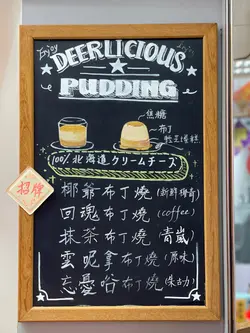 Enjoy
DEERLICIOUS
PUDDING
焦糖
布丁
輕芝士蛋糕
100% 北海道クリームチーズ
招牌
椰爺布丁燒(新鮮椰青)
回魂布丁燒(coffee)
抹茶布丁燒(青嵐)
雲呢拿布丁燒(原味)
忘憂谷布丁燒(朱古力)